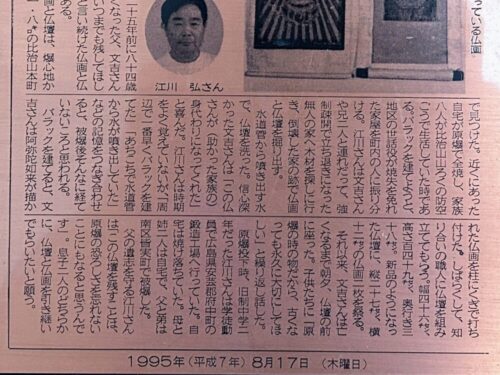 っている仏画
江川 弘さん
二十五年前に八十四歳
くなった父、文吉さん
いつまでも残してほし
と言い続けた仏画と仏
ある。
仏画と仏壇は、爆心地か
一・八㌔の比治山本町
で見つけた。近くにあった
自宅が原爆で全焼し、家族
八人が比治山ろくの防空
ごうで生活していた時であ
る。バラックを建てようと、
地区の世話役が焼失を免れ
た家屋を町内の人に振り分
ける。江川さんは文吉さん
や兄二人と連れだって、強
制疎開で立ち退きになった
無人の家へ木材を探しに行
き、倒壊した家の跡で仏画
と仏壇を掘り出す。
水道管から噴き出す水
で、仏画を洗った。信心深
かった文吉さんは「この仏
さんが(助かった家族の)
身代わりになってくれた」
と喜んだ。江川さんは時期
をよく覚えていないが、「周
辺で一番早くバラックを建
てた」「あちこちで水道管
から水が噴き出していた」
などの記憶をつなぎ合わせ
ると、被爆後そんなに経て
いないころと思われる。
バラックを建てると、文
吉さんは阿弥陀如来が描か
れた仏画を柱にくぎで打ち
付けた。しばらくして、知
り合いの職人に仏壇を組み
立ててもらう。幅四十八㌢、
高さ百四十九㌢、奥行き三
十八㌢。新品のようになっ
た仏壇に、縦二十七㌢、横
十三㌢の仏画一枚を祭る。
それ以来、文吉さんは亡
くなるまで朝夕、仏壇の前
に座った。子供たちに「原
爆の時の物だから、古くな
っても永久に大切にしてほ
しい」と繰り返し話した。
原爆投下時、旧制中学二
年だった江川さんは学徒動
員で広島県安芸郡府中町の
鍛造工場へ行っていた。自
宅は焼け落ちていた。母と
姉二人は自宅で、父と弟は
南区皆実町で被爆した。
父の遺志を守る江川さん
は「この仏壇を残すことは、
原爆の恐ろしさを忘れない
ことにもなると思うんで
す」。息子二人のどちらか
に、仏壇と仏画を引き継い
でもらいたいと願う。
1995年(平成7年) 8月17日 (木曜日)